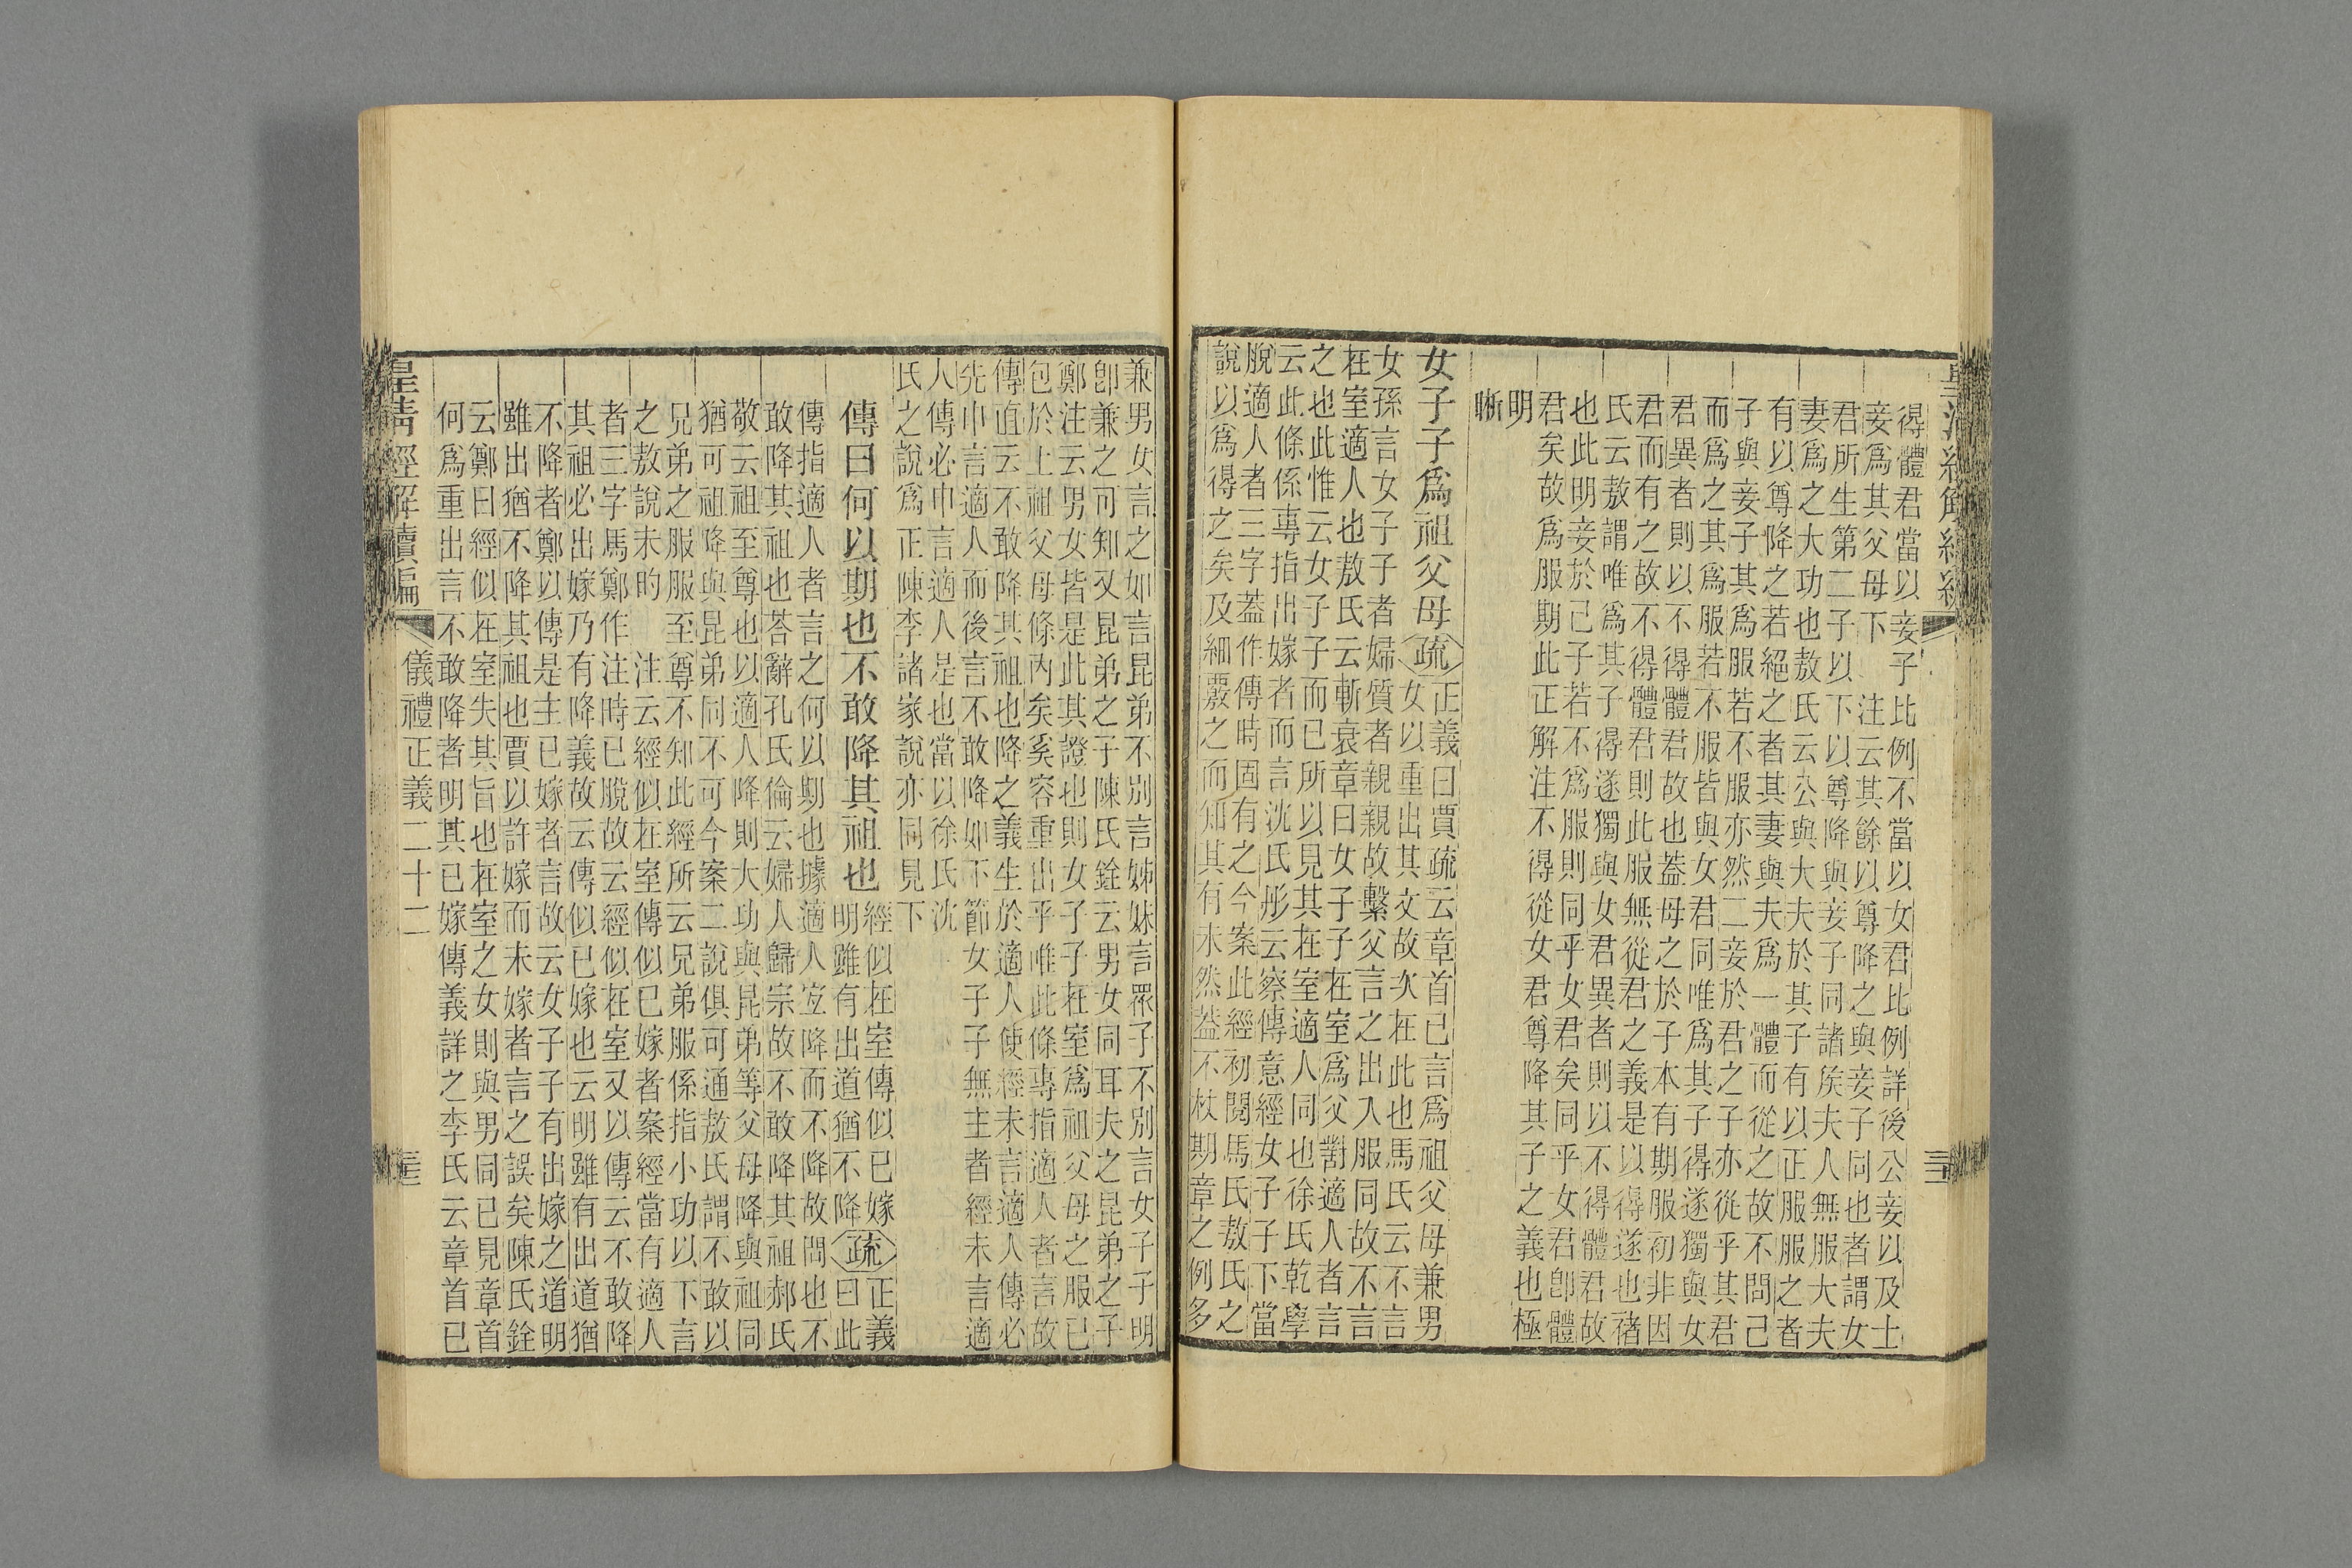 得體君當以妾子比例不當以女君比例詳後公妾以及士
妾爲其父母下　注云其餘以尊降之與妾子同也者謂女
君所生第二子以下以尊降與妾子同諸矦夫人無服大夫
妻爲之大功也敖氏云公與大夫於其子有以正服服之者
有以尊降之若絕之者其妻與夫爲一體而從之故不問己
子與妾子其爲服若不服亦然二妾於君之子亦從乎其君
而爲之其爲服若不服皆與女君同唯爲其子得遂獨與女
君異者則以不得體君故也蓋母之於子本有期服初非因
君而有之故不得體君則此服無從君之義是以得遂也褚
氏云敖謂唯爲其子得遂獨與女君異者則以不得體君故
也此明妾於己子若不爲服則同乎女君矣同乎女君卽體
君矣故爲服期此正解注不得從女君尊降其子之義也極
明
晣
女子子爲祖父母疏正義曰賈疏云章首已言爲祖父母兼男
女以重出其文故次在此也馬氏云不言
女孫言女子子者婦質者親親故繫父言之出入服同故不言
在室適人也敖氏云斬衰章曰女子子在室爲父對適人者言
之也此惟云女子子而已所以見其在室適人同也徐氏乾學
云此條係專指出嫁者而言沈氏彤云察傳意經女子子下當
脫適人者三字蓋作傳時固有之今案此經初閱馬氏敖氏之
說以爲得之矣及細覈之而知其有未然蓋不杖期章之例多
兼男女言之如言昆弟不別言姊妹言眾子不別言女子子明
卽兼之可知又昆弟之子陳氏銓云男女同耳夫之昆弟之子
鄭注云男女皆是此其證也則女子子在室爲祖父母之服已
包於上祖父母條內矣奚容重出乎唯此條專指適人者言故
傳直云不敢降其祖也降之義生於適人使經未言適人傳必
先申言適人而後言不敢降如下節女子子無主者經未言適
人傳必申言適人是也當以徐氏沈
氏之說爲正陳李諸家說亦同見下
傳曰何以期也不敢降其祖也經似在室傳似已嫁
明雖有出道猶不降疏正義曰此
傳指適人者言之何以期也據適人宜降而不降故問也不
敢降其祖也荅辭孔氏倫云婦人歸宗故不敢降其祖郝氏
敬云祖至尊也以適人降則大功與昆弟等父母降與祖同
猶可祖降與昆弟同不可今案二說俱可通敖氏謂不敢以
兄弟之服服至尊不知此經所云兄弟服係指小功以下言
之敖說未昀　注云經似在室傳似已嫁者案經當有適人
者三字馬鄭作注時已脫故云經似在室又以傳云不敢降
其祖必出嫁乃有降義故云傳似已嫁也云明雖有出道猶
不降者鄭以傳是主已嫁者言故云女子子有出嫁之道明
雖出猶不降其祖也賈以許嫁而未嫁者言之誤矣陳氏銓
云鄭曰經似在室失其旨也在室之女則與男同已見章首
何爲重出言不敢降者明其已嫁傳義詳之李氏云章首已
皇清經解續編
儀禮正義二十二